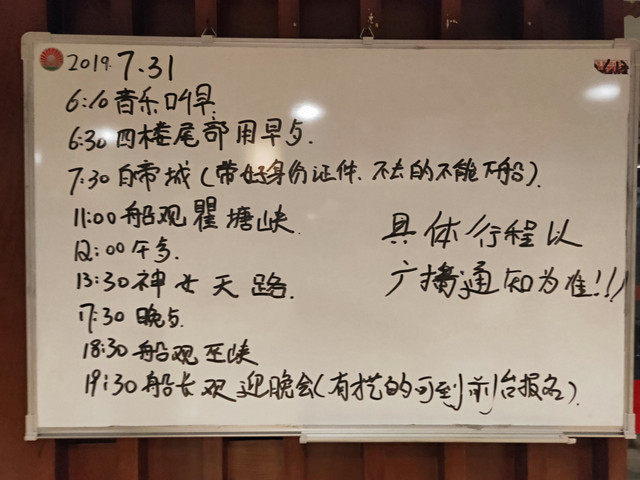 2019.7.31
6:10音乐叫早.
6:30四楼尾部用早点.
7:30白帝城(带好身份证件、不去的不能下船).
11:00船观瞿塘峡.
12:00午点.
13:30神女天路.
17:30晚点.
18:30船观巫峡
19:30船长欢迎晚会(有才艺的可到前台报名).
具体行程以
广播通知为准!!!